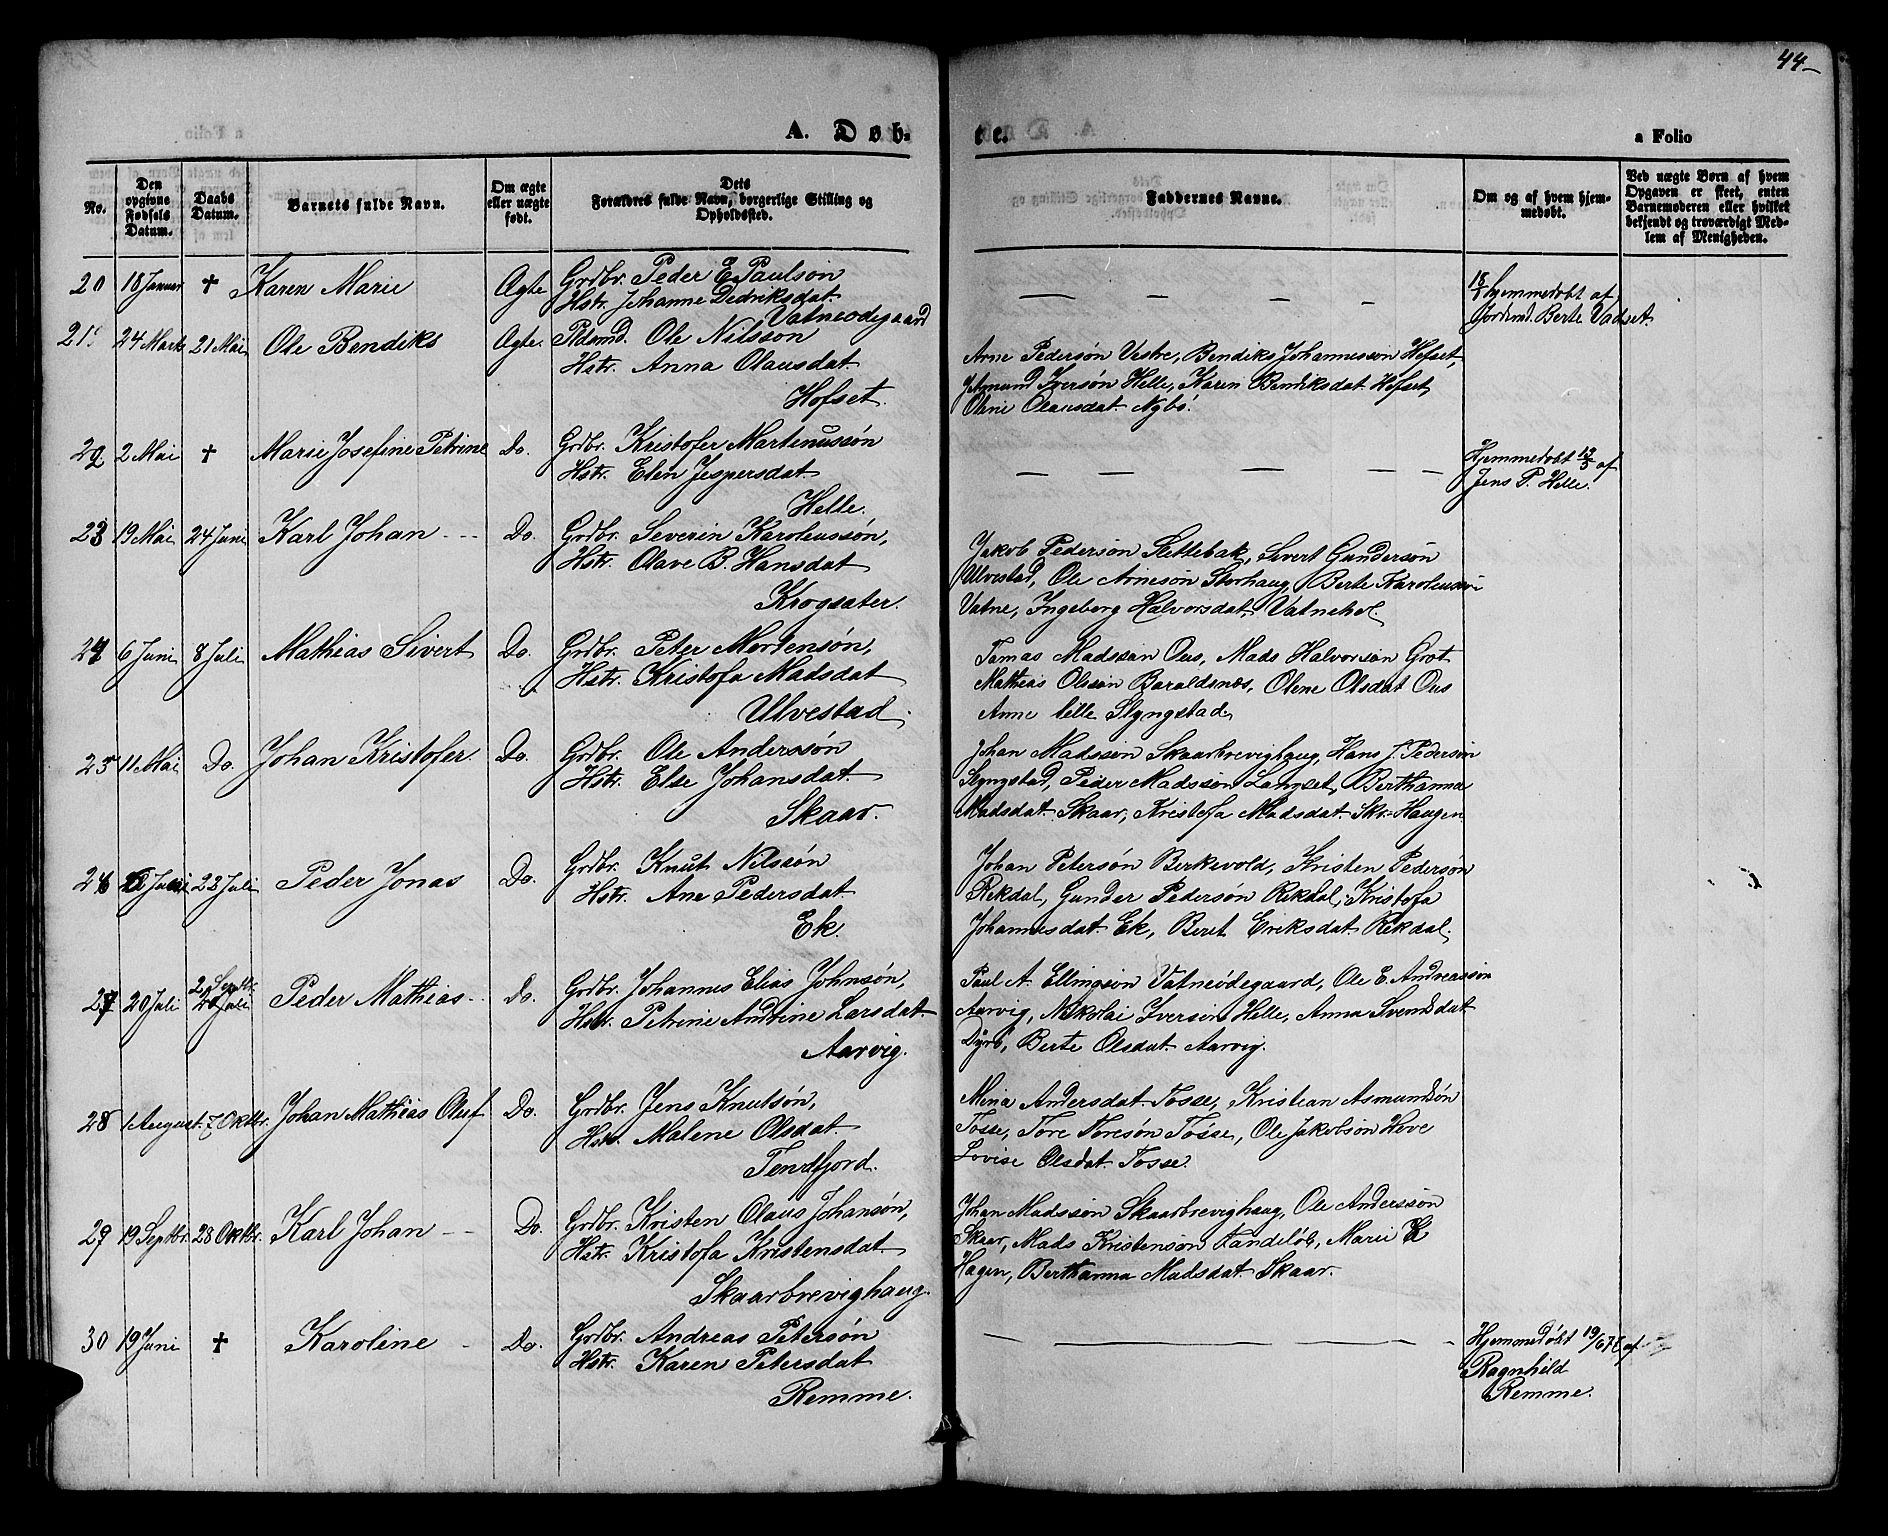 44-
A. Døb-
te.
a Folio
No.
Den opgivne Fødsels Datum.
Daabs Datum.
Barnets fulde Navn.
Om ægte eller uægte født.
Dets Forældres fulde Navn, borgerlige Stilling og Opholdssted.
Faddernes Navne.
Om og af hvem hjemmedøbt.
Ved uægte Børn af hvem Opgaven er skeet, enten Barnemoderen eller hvilket bekjendt og troværdigt Medlem af Menigheden.
20 18 Januar † Karen Marie Ægte Grdbr. Peder E. Paulsøn
Hstr. Johanne Dedriksdat.
Vatneødegaard
18/1 hjemmedøbt af
Jordemd. Berte Vadset.
21 24 Marts 21 Mai Ole Bendiks Ægte. Pldsmd. Ole Nilsson
Hstr. Anna Olausdat.
Hofset.
Arne Pedersøn Vestre, Bendiks Johannessøn Hofset,
Jetmund Iversøn Helle, Karen Bendiksdat. Hofset,
Oline Olausdat. Nybø.
22 2 Mai † Marie Josefine Petrine Do. Grdbr. Kristofer Martinussøn
Hstr. Elen Jespersdat.
Helle.
Hjemmedøbt 13/5 af
Jens P. Helle.
23 19 Mai 24 Juni Karl Johan Do. Grdbr. Severin Karolussøn,
Hstr. Olave B. Hansdat
Krogsæter.
Jakob Pedersøn Slettebak, Sivert Gundersøn
Ulvestad, Ole Arnesøn Storhaug, Berte
Vatne, Ingeborg Halvorsdat. Vatnehol.
24 6 Juni 8 Juli Mathias Sivert Do. Grdbr. Peter Mortensøn,
Hstr. Kristofa Madsdat
Ulvestad.
Tomas Madssøn Ous, Mads Halvorsøn Grot
Mathias Olsøn Baraldsnæs, Oline Olsdat Ous
Anne Lille Slyngstad,
25 11 Mai Do. Johan Kristofer. Do. Grdbr. Ole Anderssøn
Hstr. Else Johansdat.
Skaar.
Johan Madssøn Skaarbrevighaug, Hans J. Pedersøn
Slyngstad, Peder Madssøn Langset, Berthanna
Madsdat. Skaar, Kristofa Madsdat. Skr. Haugen.
26 Juni 22 Juli Peder Jonas Do. Grdbr. Knut Nilssøn
Hstr. Ane Pedersdat.
Ek.
Johan Petersøn Berkevold, Kristen Pedersøn
Rekdal, Gunder Pedersøn Rekdal, Kristofa
Johannesdat. Ek, Beret Eriksdat. Rekdal.
27 20 Juli 2 Septbr. Peder Mathias Do. Grdbr. Johannes Elias Johnsøn,
Hstr. Petrine Andrine Larsdat.
Aarvig.
Paul A. Ellingsøn Vatneødegaard, Ole E. Andreassøn
Aarvig, Nikolai Iversøn Helle, Anna Svendsdat
Dyrø, Berte Olsdat. Aarvig.
28 1 August. 7 Oktbr. Johan Mathias Oluf Do. Grdbr. Jens Knutsøn,
Hstr. Malene Olsdat.
Tendfjord.
Mina Andersdat. Tosse, Kristian Asmundsøn
Tosse, Tore Toresøn Tosse, Ole Jakobsøn Hove
Lovise Olsdat. Tosse.
29 19 Septbr. 28 Oktbr. Karl Johan Do. Grdbr. Kristen Olaus Johansøn,
Hstr. Kristofa Kristensdat.
Skaarbrevighaug.
Johan Madssøn Skaarbrevighaug, Ole Anderssøn
Skaar, Mads Kristensøn Landeløb, Marie
Hagen, Berthanna Madsdat. Skaar.
30 19 Juni † Karoline Do. Grdbr. Andreas Petersøn
Hstr. Karen Petersdat
Remme.
Hjemmedøbt 19/6 af
Ragnhild
Remme.